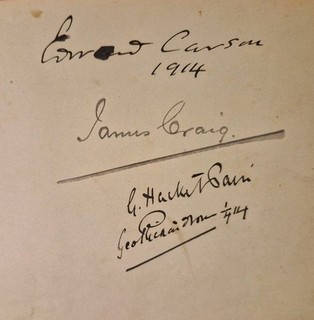 Edward Carson
1914
James Craig.
G. Hacket Pain
Geo Richardson 1/9/14